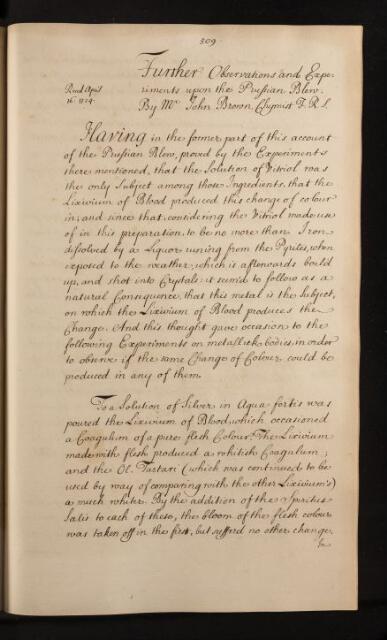 309.
Further Observations and Expe-
Read April riments upon the Prussian Blew.
16. 1724. By Mr John Brown Chymist F. R. S.
Having in the former part of this account
of the Prussian Blew, proved by the Experiments
there mentioned, that the Solution of Vitriol was
the only Subject among those Ingredients, that the
Lixivium of Blood produced this change of colour
in; and since that, considering the Vitriol made use
of in this preparation, to be no more than Iron
dissolved by a Liquor runing from the Pyrites, when
exposed to the weather, which is afterwards boild
up, and shot into Crystals: it seem'd to follow as a
natural Consequence, that this metal is the Subject,
on which the Lixivium of Blood produces the
Change. And this thought gave occasion to the
following Experiments on metallick bodies, in order
to observe if the same Change of Colour could be
produced in any of them.
To a Solution of Silver in Aqua fortis was
poured the Lixivium of Blood, which occasioned
a Coagulum of a pure flesh Colour. The Lixivium
made with flesh produced a whitish Coagulum;
and the Ol. Tartari (which was continued to be
used by way of comparing with the other Lixivium's)
a much whiter. By the addition of the Spiritus
Salis to each of these, the bloom of the flesh colour
was taken off in the first, but suffer'd no other change.